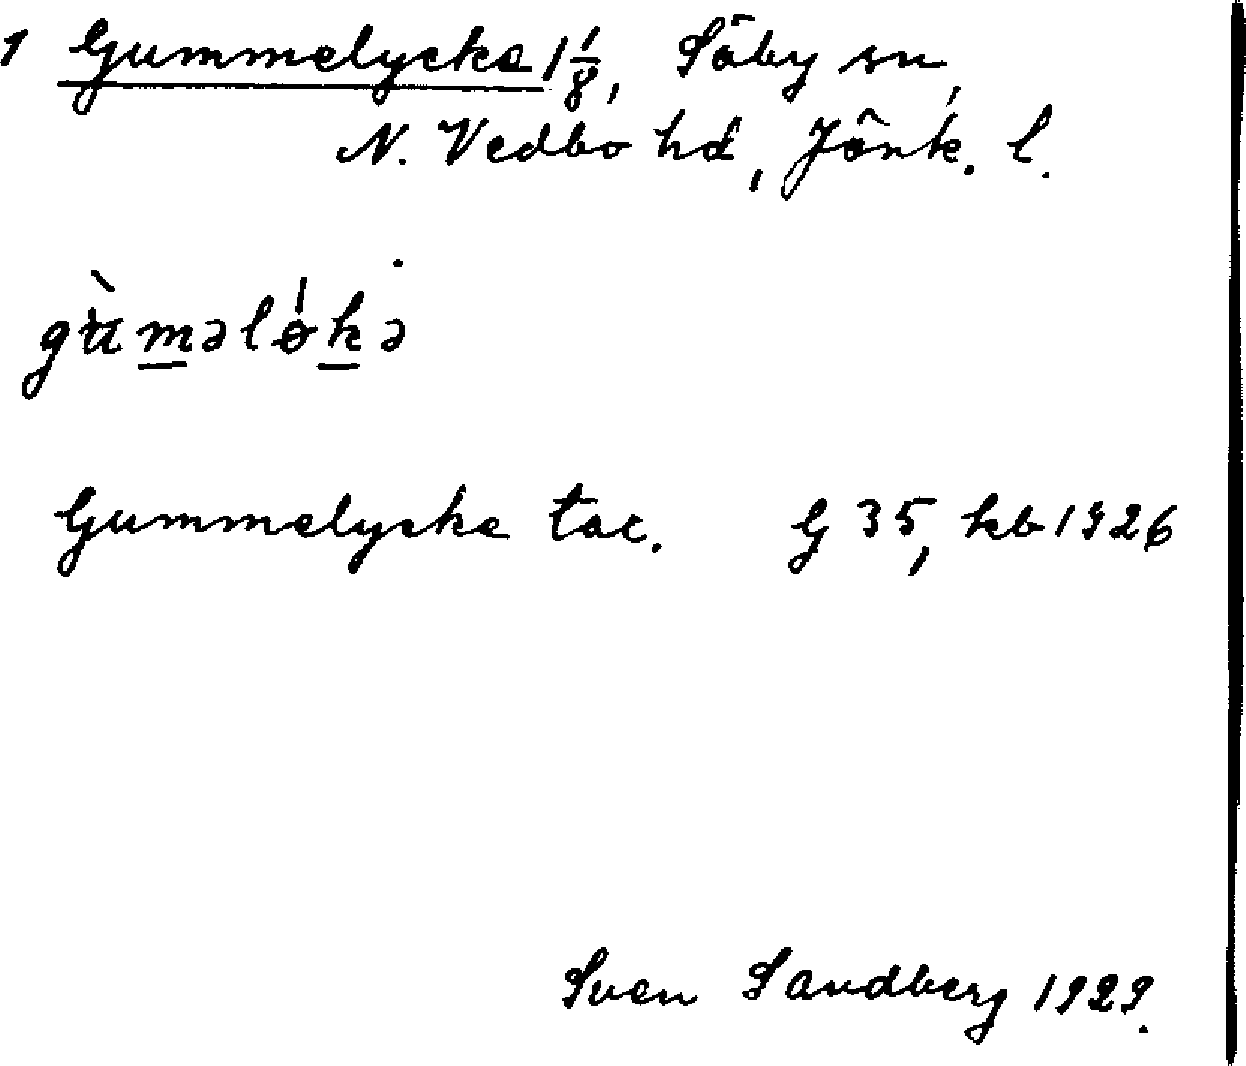 1 Gummelycke 1 1/8, Säby sn,
N. Vedbo hd, Jönk. l.
gù̀mǝlǿkǝ
Gummelycke tac. G 35, kb 1926
Sven Sandberg 1929.